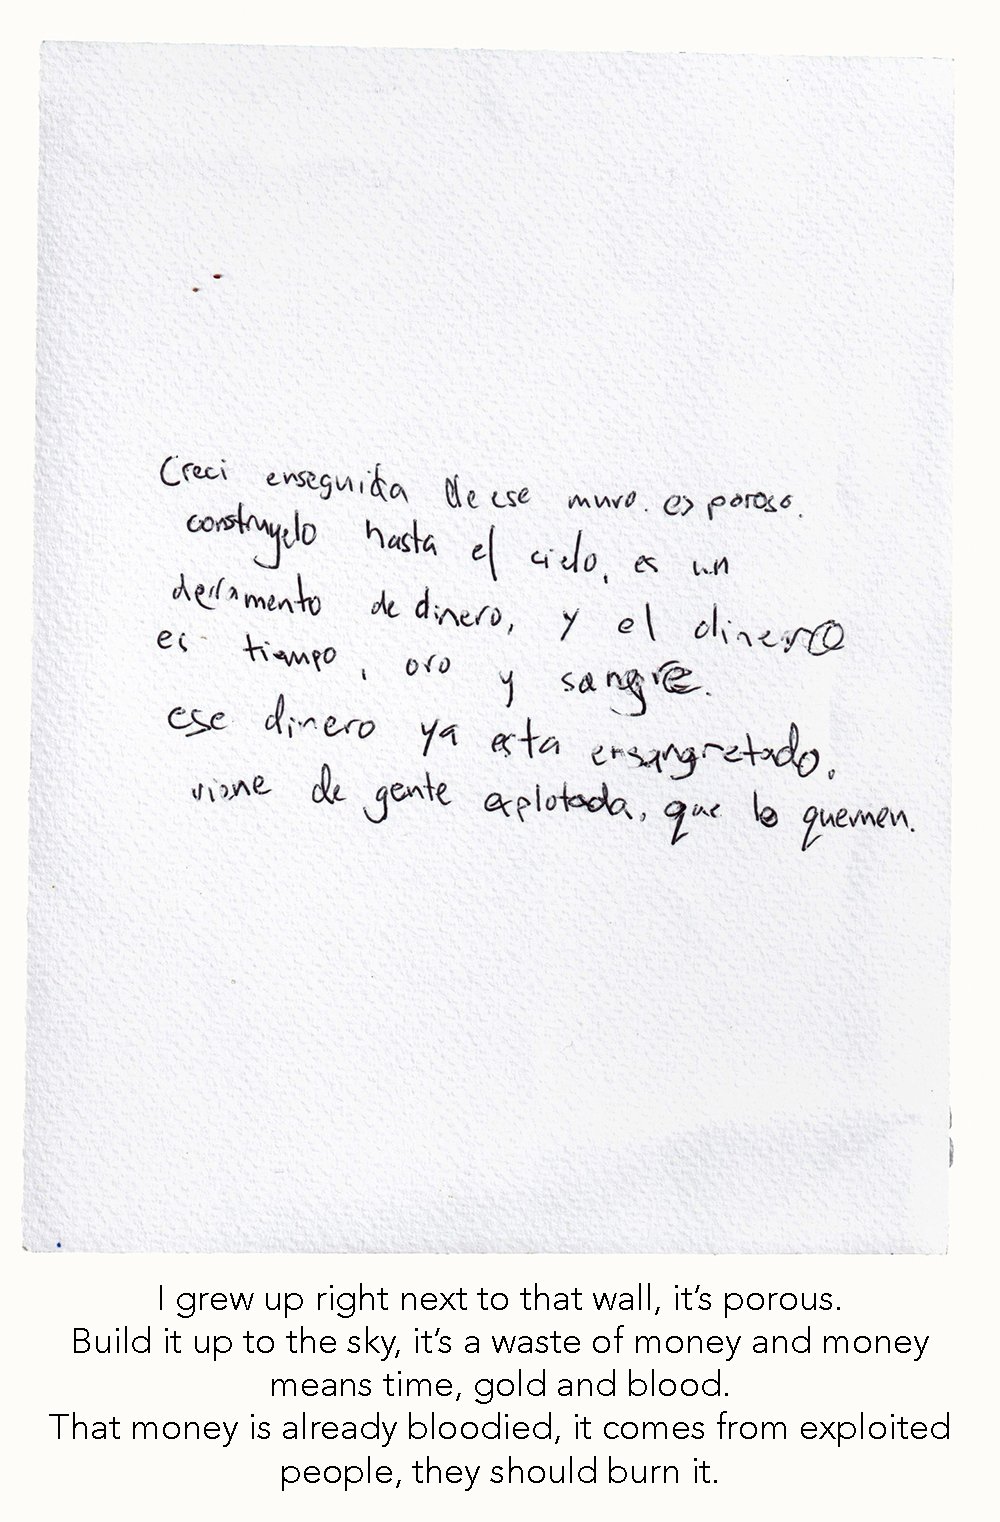 Creci enseguida de ese muro. es poroso.
construyelo hasta el cielo, es un
derramento de dinero, y el dinero
es tiempo, oro y sangre.
ese dinero ya esta ensangretado.
viene de gente explotada, que lo quemen.
I grew up right next to that wall, it’s porous.
Build it up to the sky, it’s a waste of money and money
means time, gold and blood.
That money is already bloodied, it comes from exploited
people, they should burn it.